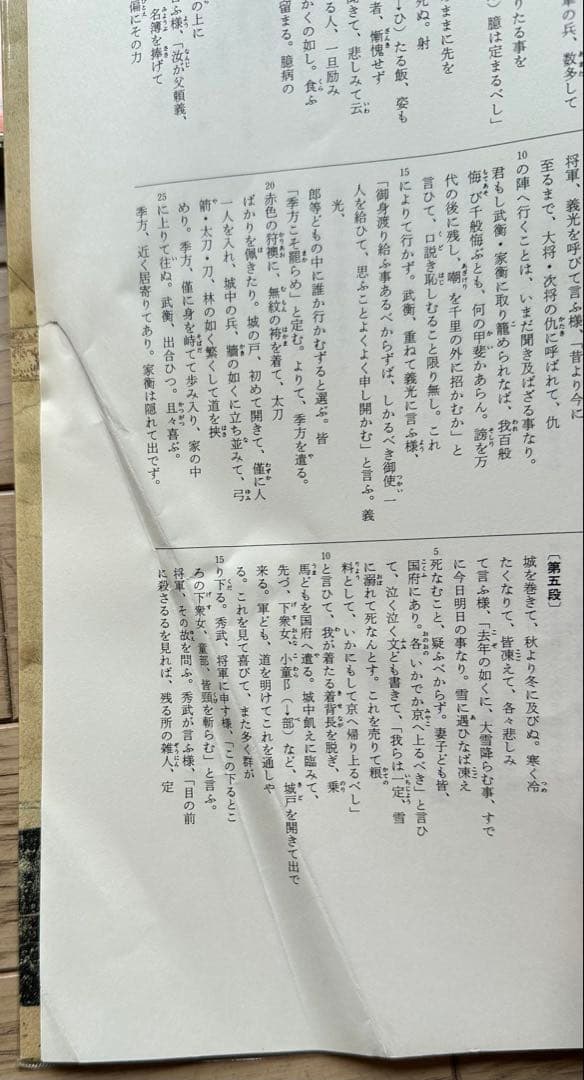 りたる事を
）臆は定まるべし」
ままに先を
死ぬ。射
ひ）たる飯、姿も
者、慚愧せず
きて、悲しみて云
る人、一旦励み
くの如し。食ふ
留まる。臆病の
の上に
ふ様、「汝が父頼義、
名簿を捧げて
偏にその力
将軍、義光を呼びて言ふ様、「昔より今に
至るまで、大将・次将の仇に呼ばれて、仇
10の陣へ行くことは、いまだ聞き及ばざる事なり。
君もし武衡・家衡に取り籠められなば、我百般
悔び千般悔ぶとも、何の甲斐かあらん。謗を万
代の後に残し、嘲を千里の外に招かむか」と
言ひて、口説き恥しむること限り無し。これ
15によりて行かず。武衡、重ねて義光に言ふ様、
「御身渡り給ふ事あるべからずば、しかるべき御使一
人を給ひて、思ふことよくよく申し開かむ」と言ふ。義
光、
郎等どもの中に誰か行かむずると選ぶ。皆
「季方こそ罷らめ」と定む。よりて、季方を遣る。
20赤色の狩襖に、無紋の袴を着て、太刀
ばかりを佩きたり。城の戸、初めて開きて、僅に人
一人を入れ、城中の兵、牆の如くに立ち並みて、弓
箭・太刀・刀、林の如く繁くして道を挟
めり。季方、僅に身を峙てて歩み入り、家の中
25に上りて往ぬ。武衡、出合ひつ。且々喜ぶ。
季方、近く居寄りてあり。家衡は隠れて出でず。
〔第五段〕
城を巻きて、秋より冬に及びぬ。寒く冷
たくなりて、皆凍えて、各々悲しみ
て言ふ様、「去年の如くに、大雪降らむ事、すで
に今日明日の事なり。雪に遇ひなば凍え
5死なむこと、疑ふべからず。妻子ども皆、
国府にあり。各いかでか京へ上るべき」と言ひ
て、泣く泣く文ども書きて、「我らは一定、雪
に溺れて死なんとす。これを売りて粮
料として、いかにもして京へ帰り上るべし」
10と言ひて、我が着たる着背長を脱ぎ、乗
馬どもを国府へ遣る。城中飢えに臨みて、
先づ、下衆女、小童阝（→部）など、城戸を開きて出で
来る。軍ども、道を明けてこれを通しや
る。これを見て喜びて、また多く群が
15り下る。秀武、将軍に申す様、「この下るとこ
ろの下衆女、童部、皆頸を斬らむ」と言ふ。
将軍、その故を問ふ。秀武が言ふ様、「目の前
に殺さるるを見れば、残る所の雑人、定